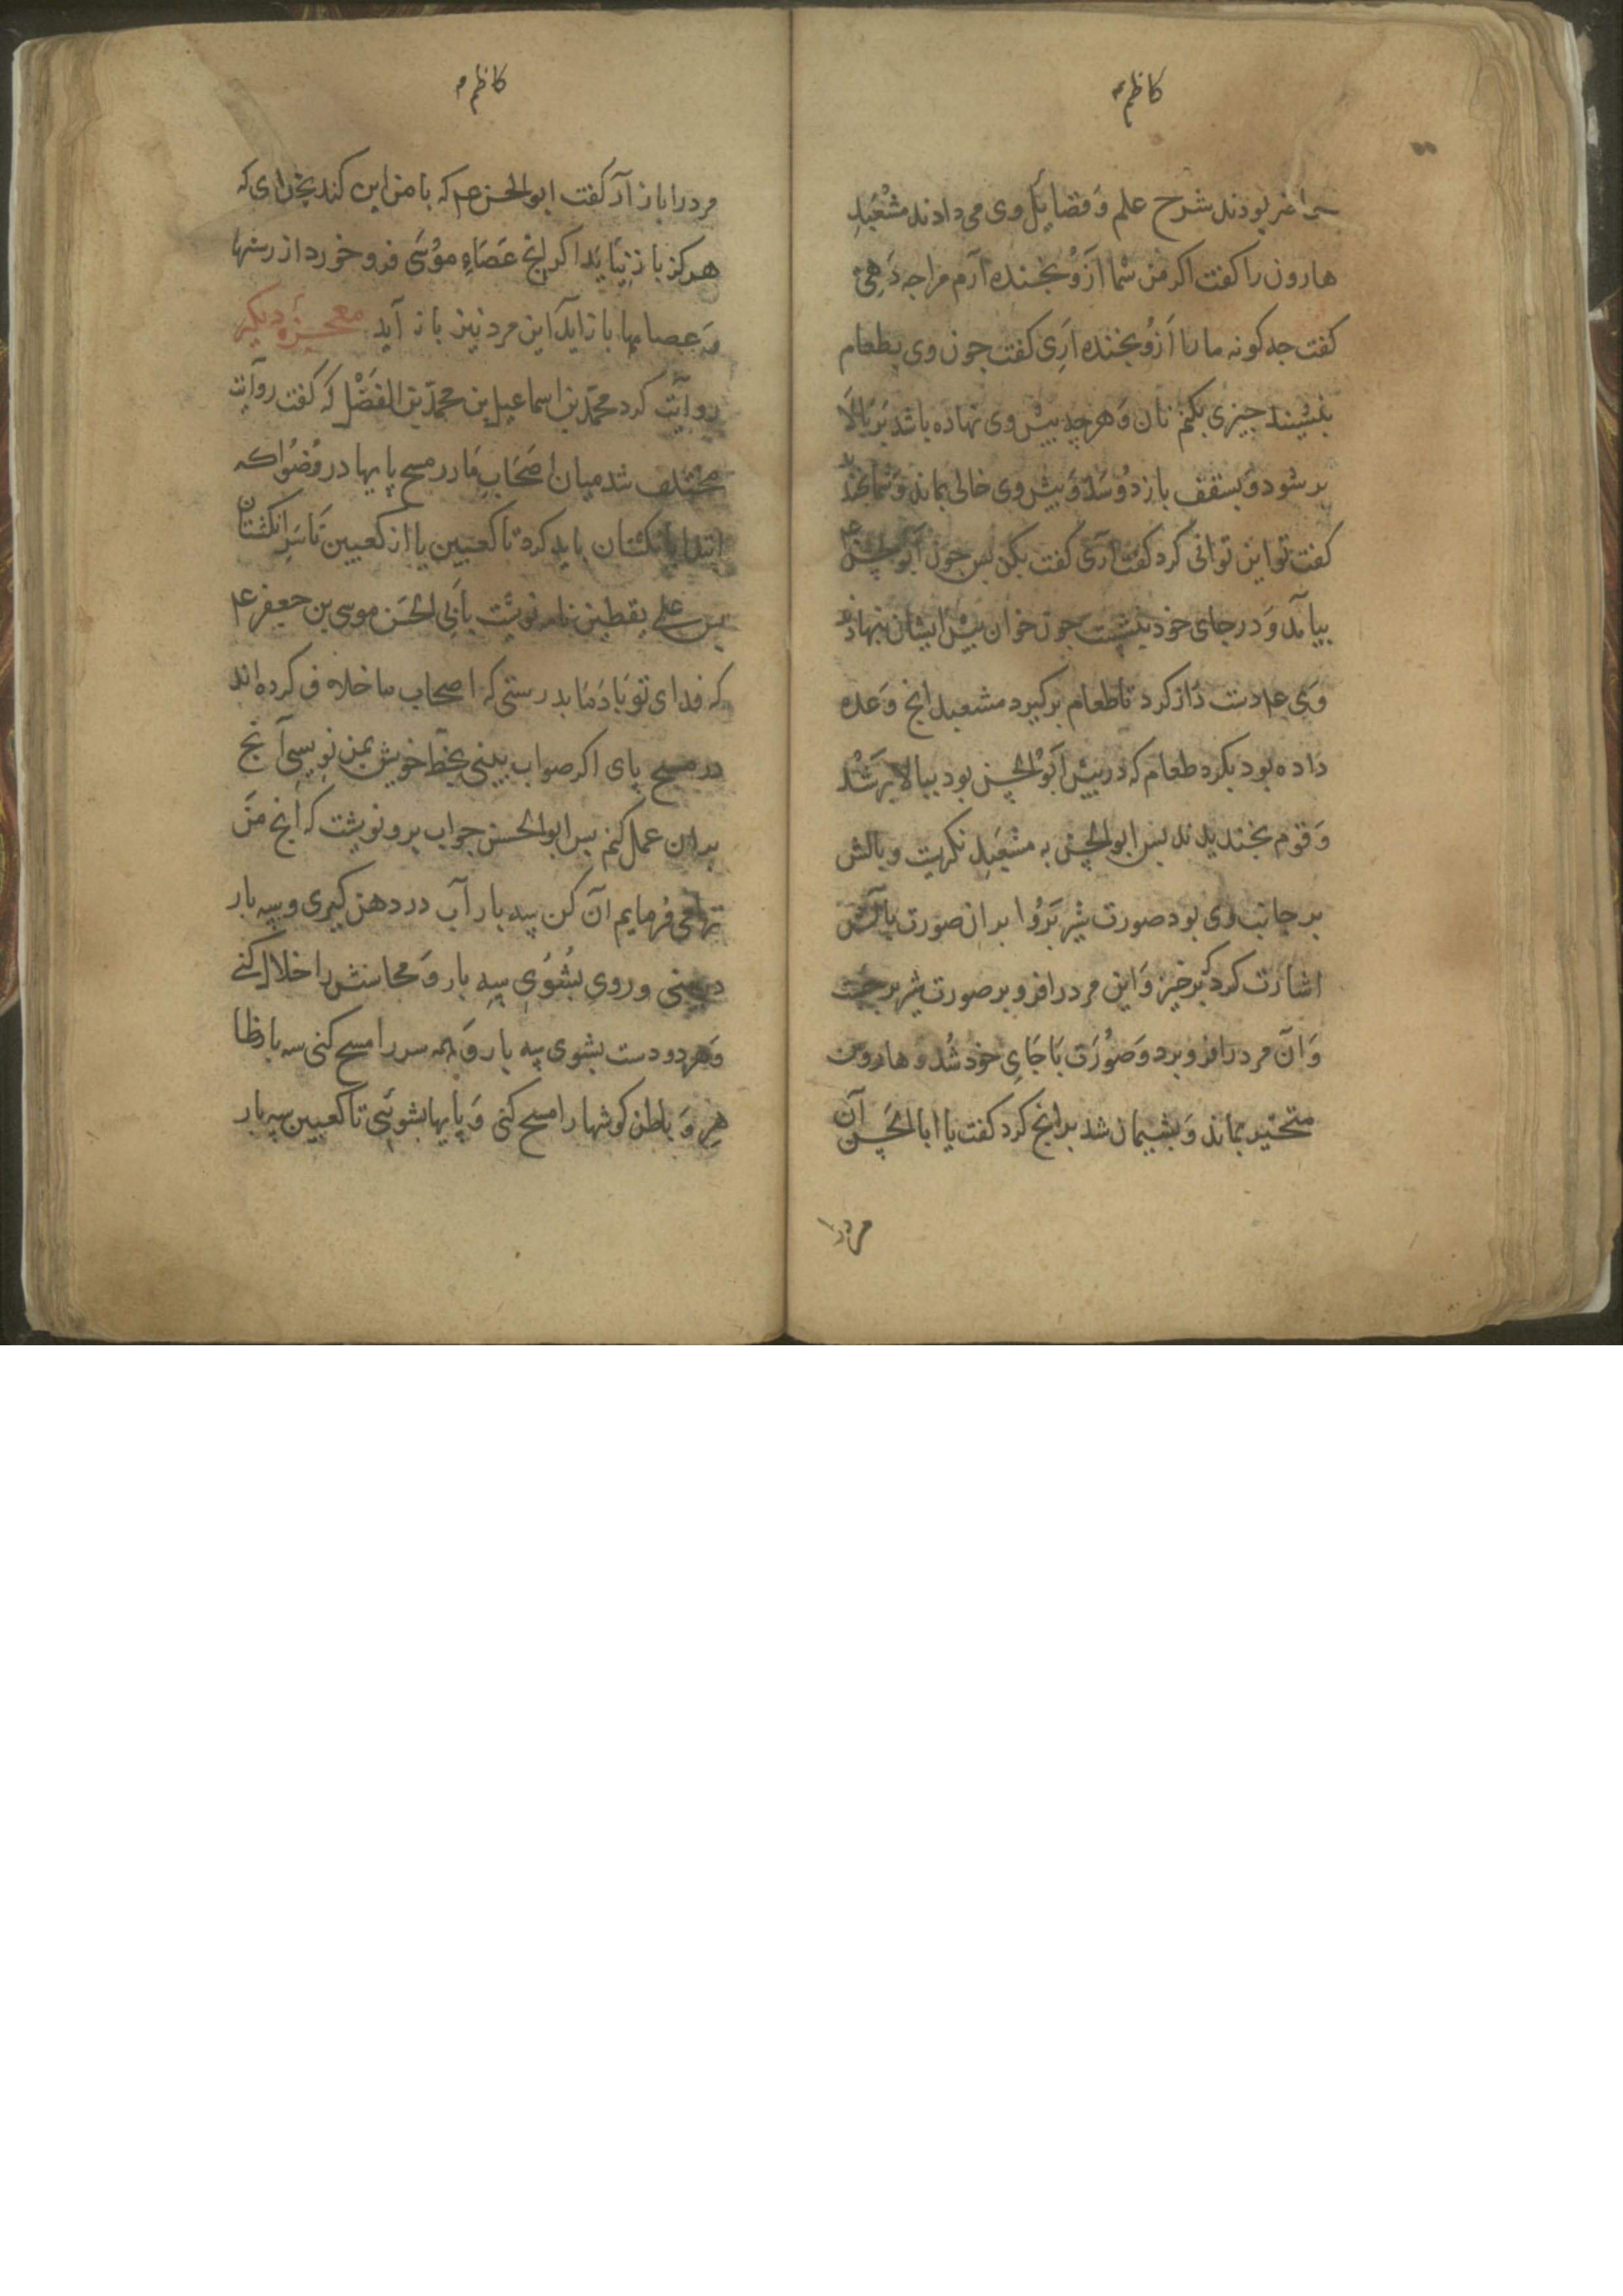 کاظم
حاضر بودند شرح علم وَ فضایل وی می دادند مشعبد
هارون را کفت اکر من شما از و بخنده آرم مرا جه دَهی
کفت جه کونه ما را اَزو بخنده آرِی کفت جون وی بطعام
بنشیند جیزی بکنم نان وَ هرجه بیش وی نهاده باشد بَر بَالا
بر شود وَ بسقف باز دوسَد وَ بیش وی خالی بماند وَ شما بخند
کفت تو این توانی کرد کفت آری کفت بکن بس جون ابو الحسن
بیامد وَ در جای خود بنشست جون خوان بیش ایشان بنهاد
وَی ع دست دَراز کرد تا طعام برکیرد مشعبد انج وَعده
داده بود بکرد طعام که در بیش ابوُ الحسن بود ببالا برَ شد
وَ قوم بخندیدند بس ابو الحسن به مشعبد نکریت و بالش
بر جانب وی بود صورت شیر بَرو بران صورت بالش
اشارت کرد که برخیز وَ این مرد را فرو بر صورت شیر برجست
وَ آن مرد را فرو برد وَ صوُرَت بَا جَایِ خود شُد و هارون
متحیر بماند وَ بشیمان شد بدانج کرد کفت یا ابا الحَسن آن
مرد را
کاظم
مرد را باز آر کفت ابو الحسن ع م که با من این کند بخدای که
هرکز باز نیَاید اکر انج عَصَاءِ موُسَی فرو خورد از رسنها
وَ عصاها باز آید این مرد نیز باز آید معجزهٔ دیکر
روایت کرد محمّد بن اسماعیل بن محمدّ بن الفَضْل که کفت روایت
مختلف شد میان اصَحَابِ مَا در مسح پایها در وُضوُ اکه
ابتدا بانکشتان باید کرد تا کعبین یا از کعبین تَا سَرِ انکشتان
بس علی یقطین نامه نوشت بأبِی الحَسَن موسی بن جعفر ع
که فدای تو بَادَمَا بدرستی که اصحاب ما خلاف کرده اند
در مسح پای اکر صواب بینی بخط خویش بمن نویسی آنج
بدان عمل کنم بس ابو الحسن جواب برو نوشت که انج مَن
ترا می فرمایم آن کن سه بار آب در دهن کیری و سه بار
در بینی و روی بشُوُی سه بار وَ محاسنش را خلال کنے
وَ هر دو دست بشوی سه بار وَ همه سر را مسح کنی سه بار ظا
هر وَ باطن کوشها را مسح کنی وَ پایها بشوئی تا کعبین سه بار